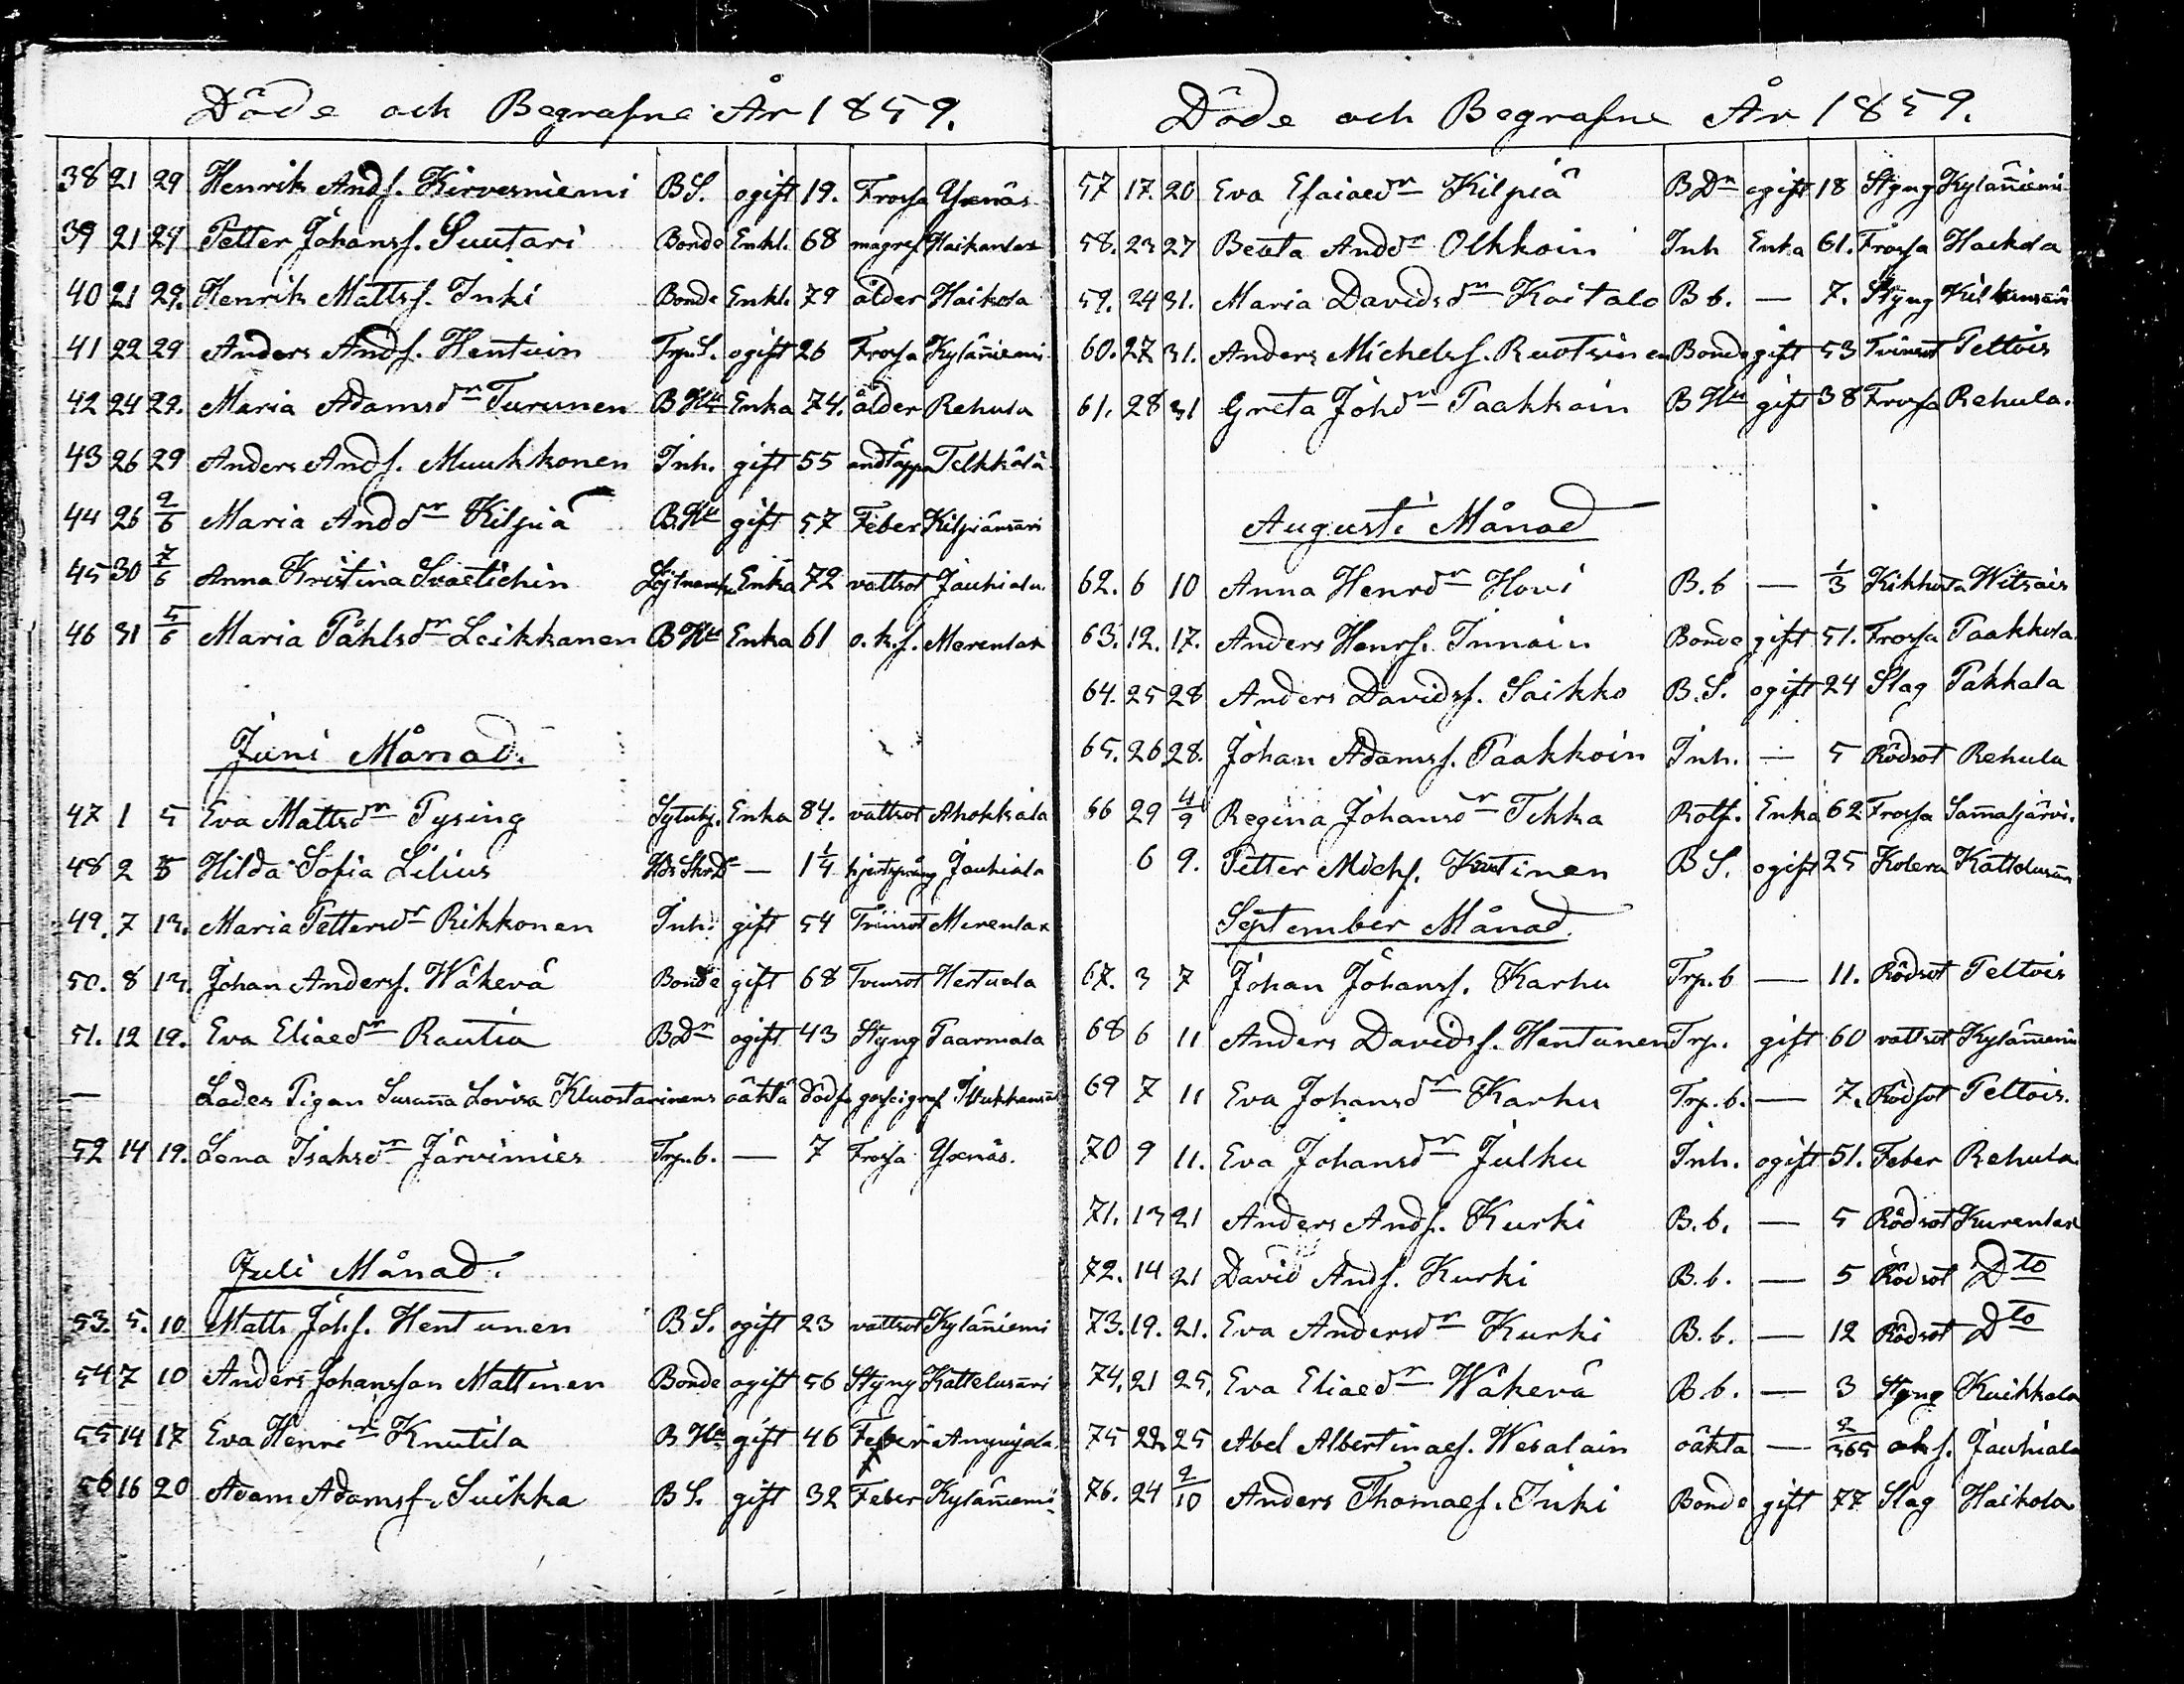 Döde och Begrafne År 1859.
38 21 29 Henrik Andsf. Kirvesniemi BS. ogift 19. Frossa Yxenäs
39 21 29 Petter Johansf. Suutari Bonde Enkl. 68 magref Haikanlax
40 21 29. Henrik Mattsf. Inki Bonde Enkl. 79 ålder Haikola
41 22 29 Anders Andsf. Hentuin Trp.S. ogift 26 Frossa Kylän̄iemi
42 24 29. Maria Adamsdr Turunen B Hu Enka 74. ålder Rehula
43 26 29 Anders Andsf. Muukkonen Inh. gift 55 andtäppa Telkkälä
44 26 2/6 Maria Anddr Kilpiä B.Hu gift 57 Feber Kilpiänsaari
45 30 7/6 Anna Kristina Svaetichin Löjtnants Enka 72 vattsot Jauhiala
46 31 5/6 Maria Påhlsdr Leikkanen B Hu Enka 61 o.k.s. Merenlax
Juni Månad.
47 1 5 Eva Mattsdr Pysing Enka 84. vattsot Ahokkala
48 2 5 Hilda Sofia Lilius — 1 1/4 hjertsprång Jauhiala
49. 7 13. Maria Pettersdr Rikkonen Inh: gift 54 Tvinsot Merenlax
50. 8 13. Johan Andersf. Wäkevä Bonde gift 68 Tvinsot Hertuala
51. 12 19. Eva Eliaedr Rautia BDr ogift 43 Styng Paarmala
— Lades Pigan Susan̄a Lovisa Kluostarinens oäkta dödf.
52 14 19. Lena Isaksdr Järvimies Trp.b. — 7 Frossa Yxenäs.
Juli Månad.
53. 5. 10 Matts Johsf. Hentunen B S. ogift 23 vattsot Kylän̄iemi
54 7 10 Anders Johansson Mattinen Bonde ogift 56 Styng Kattelusaari
55 14 17 Eva Henrdr Knutila B Hu gift 46 Feber
56 16 20 Adam Adamsf. Suikka B S. gift 32 Feber Kylän̄iemi
Döde och Begrafne År 1859.
57 17. 20 Eva Esaiaedr Kilpiä B Dr ogift 18 Styng Kylän̄iemi
58. 23 27 Beata Anddr Olkkoin Inh Enka 61. Frossa Haikola
59. 24 31. Maria Davidsdr Koitalo B b. — 7. Styng
60. 27 31. Anders Michelsf. Ruotsinen Bonde gift 53 Tvinsot Peltois
61. 28 31 Greta Johdr Paakkoin B Hu gift 38 Frossa Rehula.
Augusti Månad
62. 6 10 Anna Henrdr Hovi B.b — 1/3 Kikhosta Witsais
63. 12. 17. Anders Henrsf. Innain Bonde gift 51. Frossa Paakkola
64. 25 28 Anders Davidsf. Saikko B.S. ogift 24 Slag Pakkala
65. 26 28. Johan Adamsf. Paakkoin Inh. — 5 Rödsot Rehula
66 29 4/9 Regina Johansdr Tekka Rotf. Enka 62 Frossa Sam̄aljärvi.
6 9. Petter Michsf. Kutinen B S. ogift 25 Kolera
September Månad.
67. 3 7 Johan Johansf. Karhu Trp.b — 11. Rödsot Peltois
68 6 11 Anders Davidsf. Hentunen Trp. gift 60 vattsot Kylän̄iemi
69 7 11 Eva Johansdr Karhu Trp.b. — 7. Rödsot Peltois.
70 9 11. Eva Johansdr Julku Inh. ogift 51. Feber Rehula
71. 13 21 Anders Andsf. Kurki B.b. — 5 Rödsot Kurenlax
72. 14 21 David Andsf. Kurki B.b. — 5 Rödsot Dto
73. 19. 21. Eva Andersdr Kurki B.b. — 12 Rödsot Dto
74. 21 25. Eva Eliaedr Wäkevä B.b. — 3 Styng Kuikkala
75 22. 25 Abel Albertinaes. Wesalain oäkta — 2/365 oks. Jauhiala
76. 24 2/10 Anders Thomaesf. Inki Bonde gift 77 Slag Haikola